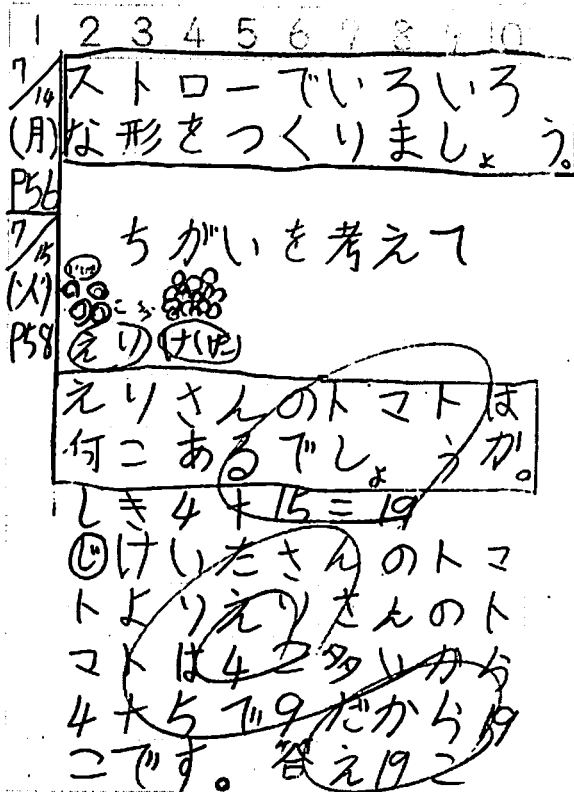 1 2 3 4 5 6 7 8 9 10
7/14 ストローでいろいろ
(月) な形をつくりましょう。
P56
7/15 ちがいを考えて
(火)
P58 えり けいた
えりさんのトマトは
何こあるでしょうか。
しき4+15=19
じけいたさんのトマ
トよりえりさんのト
マトは4こ多いから
4+5で9だから19
こです。答え19こ